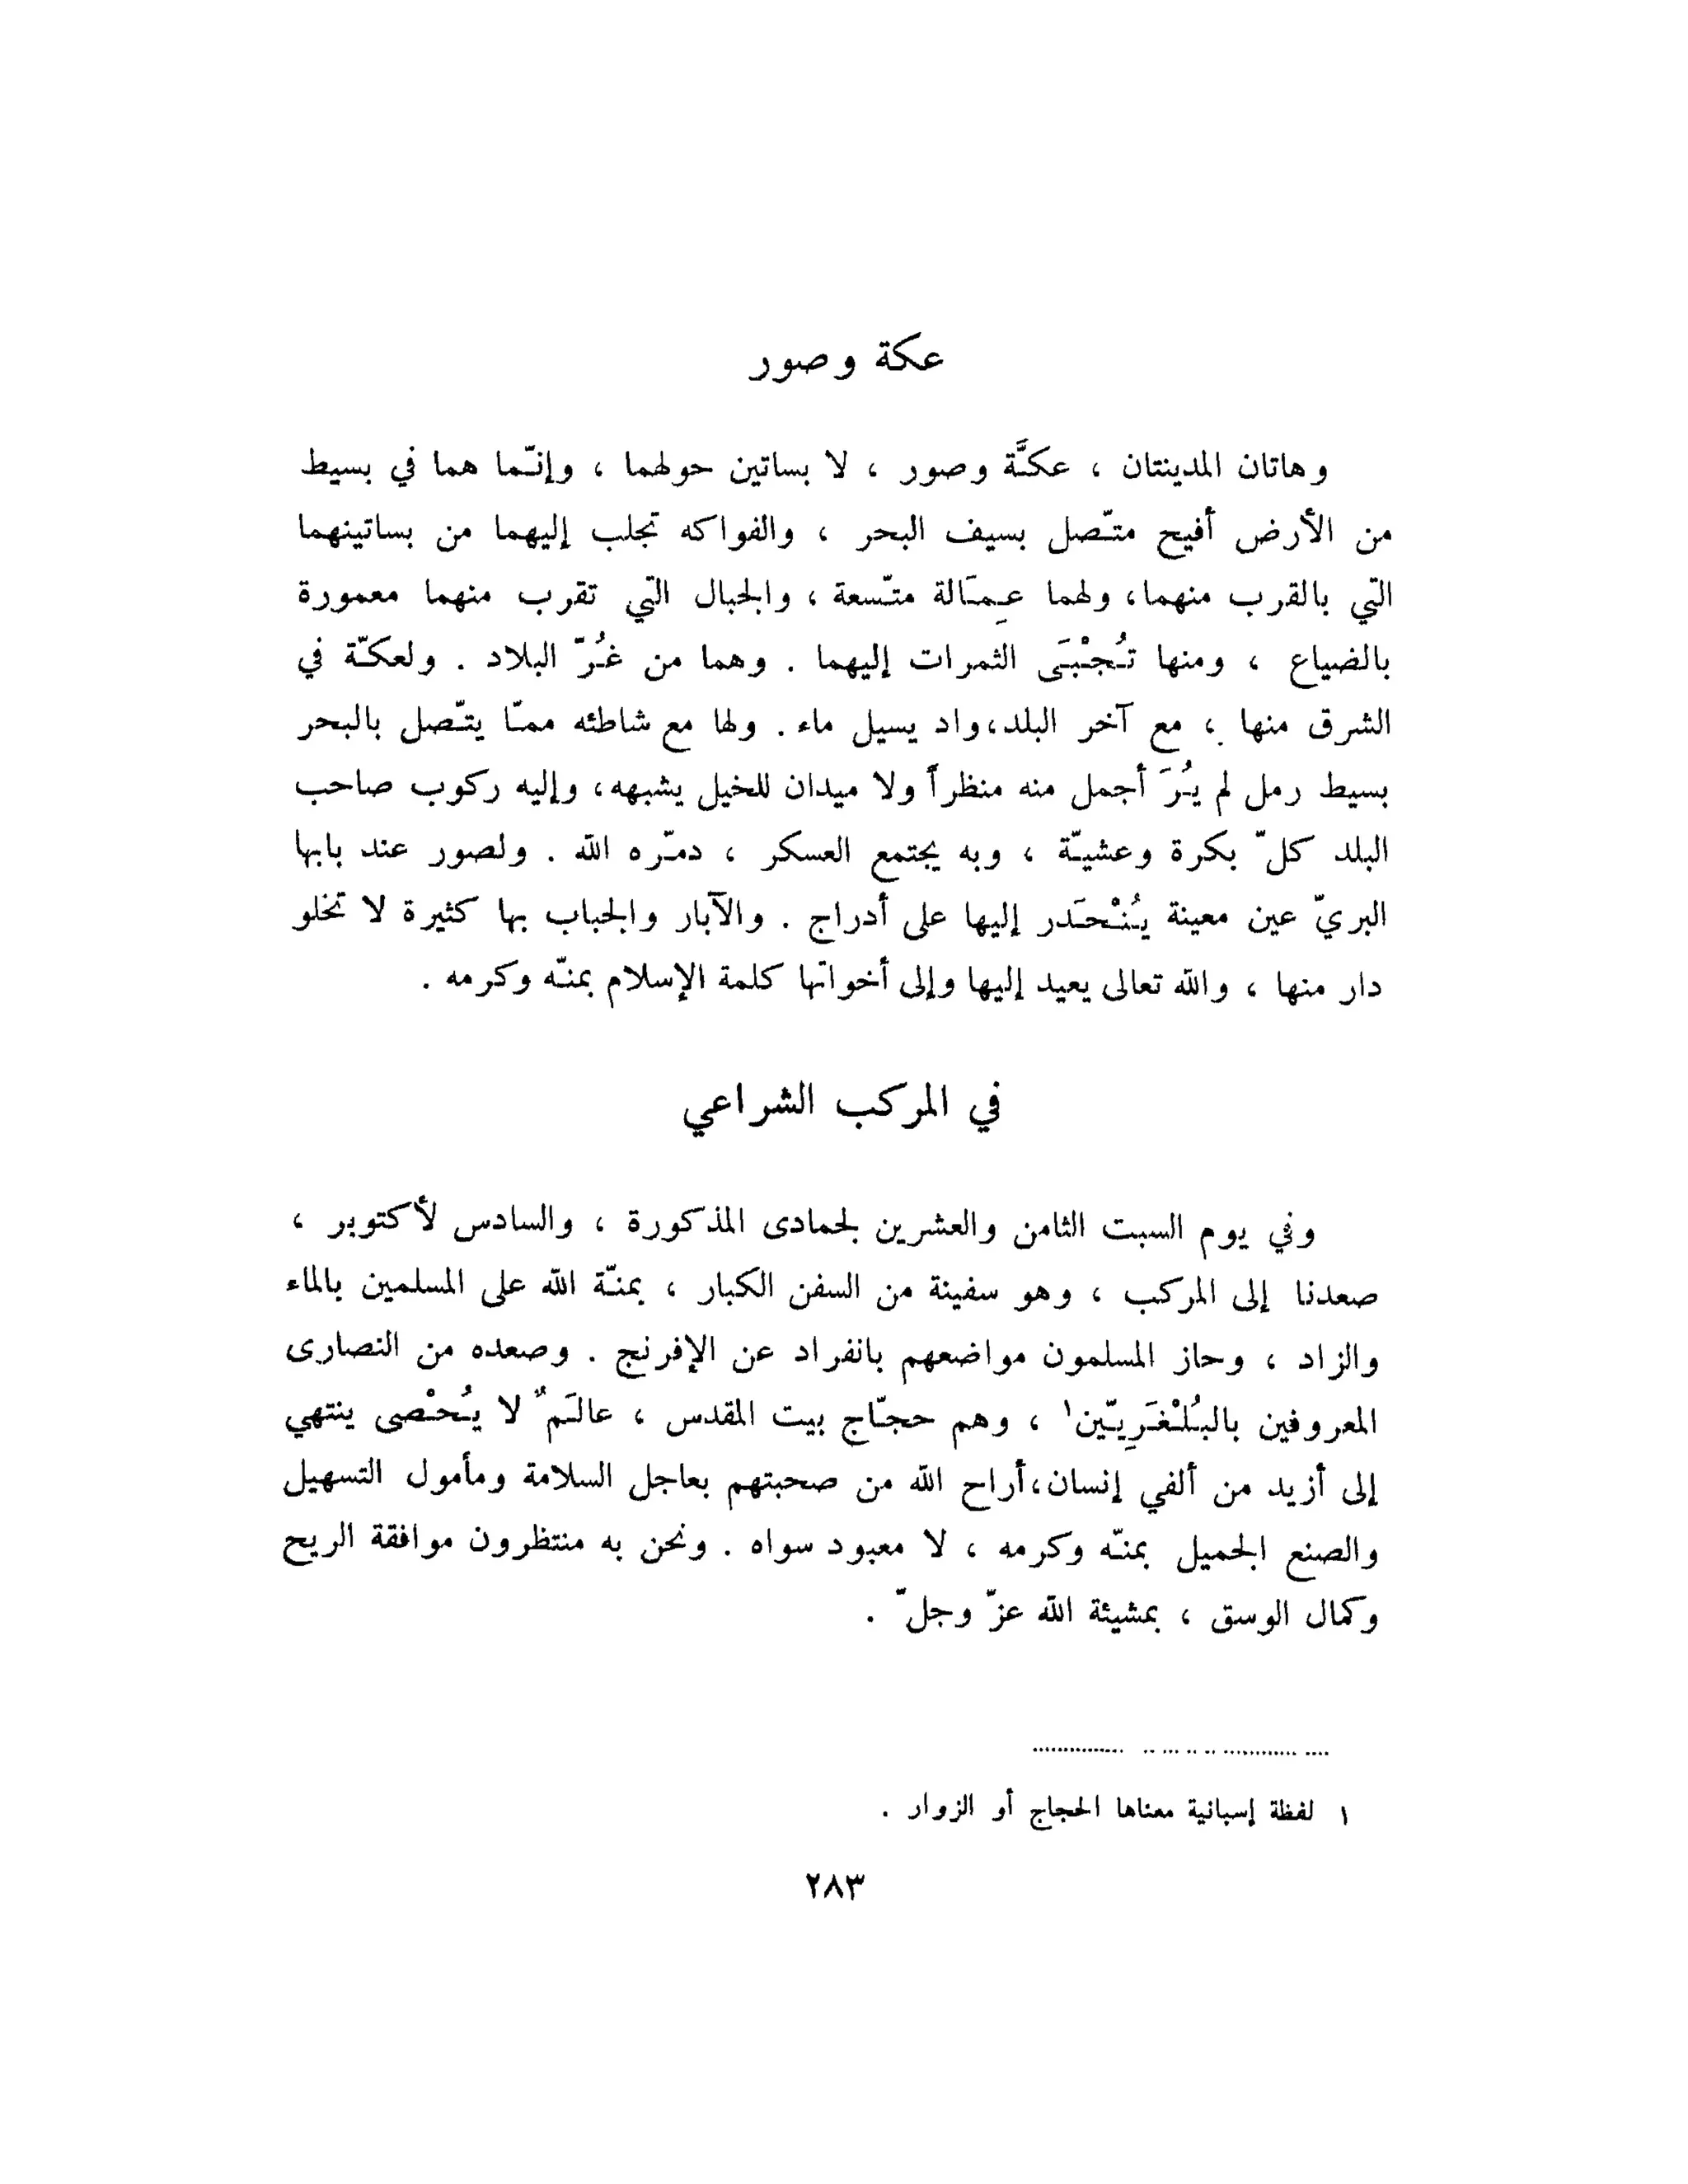 عكة وصور
وهاتان المدينتان ، عكَّة وصور ، لا بساتين حولهما ، وإنّما هما في بسيط
من الأرض أفيح متّصل بسيف البحر ، والفواكه تجلب إليهما من بساتينهما
التي بالقرب منهما، ولهما عِمَالة متّسعة ، والجبال التي تقرب منهما معمورة
بالضياع ، ومنها تُجْبَى الثمرات إليهما . وهما من غُرّ البلاد . ولعكّة في
الشرق منها ، مع آخر البلد،واد يسيل ماء . ولها مع شاطئه ممّا يتّصل بالبحر
بسيط رمل لم يُرَ أجمل منه منظراً ولا ميدان للخيل يشبهه، وإليه ركوب صاحب
البلد كلّ بكرة وعشيّة ، وبه يجتمع العسكر ، دمّره الله . ولصور عند بابها
البريّ عين معينة يُنْحَدر إليها على أدراج . والآبار والجباب بها كثيرة لا تخلو
دار منها ، والله تعالى يعيد إليها وإلى أخواتها كلمة الإسلام بمنّه وكرمه .
في المركب الشراعي
وفي يوم السبت الثامن والعشرين لجمادى المذكورة ، والسادس لأكتوبر ،
صعدنا إلى المركب ، وهو سفينة من السفن الكبار ، بمنّة الله على المسلمين بالماء
والزاد ، وحاز المسلمون مواضعهم بانفراد عن الإفرنج . وصعده من النصارى
المعروفين بالبُلْغَرِيّين١ ، وهم حجّاج بيت المقدس ، عالَمٌ لا يُحْصى ينتهي
إلى أزيد من ألفي إنسان،أراح الله من صحبتهم بعاجل السلامة ومأمول التسهيل
والصنع الجميل بمنّه وكرمه ، لا معبود سواه . ونحن به منتظرون موافقة الريح
وكمال الوسق ، بمشيئة الله عزّ وجلّ .
١ لفظة إسبانية معناها الحجاج أو الزوار .
٢٨٣